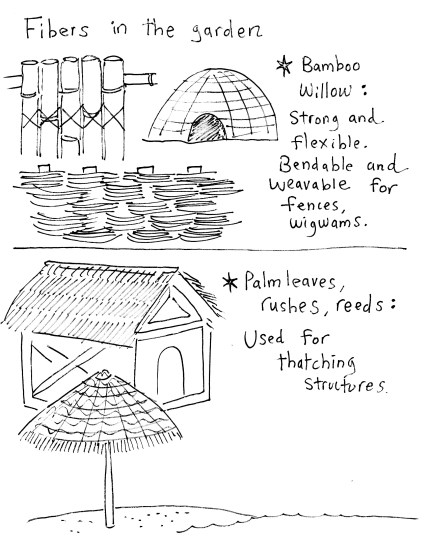 Fibers in the garden
* Bamboo
Willow:
Strong and
flexible.
Bendable and
weavable for
fences,
wigwams.
* Palm leaves,
rushes, reeds:
Used for
thatching
structures.